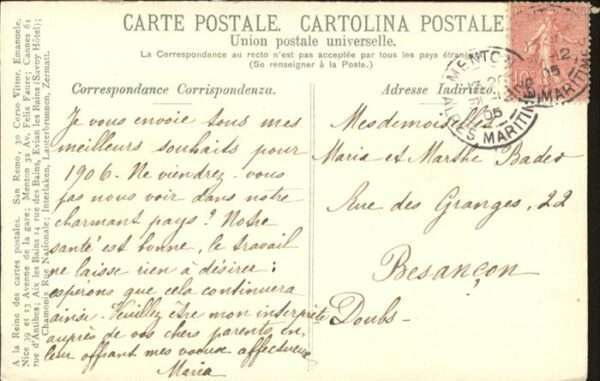 CARTE POSTALE. CARTOLINA POSTALE
Union postale universelle.
La Correspondance au recto n'est pas acceptée par tous les pays étrangers
(Se renseigner à la Poste.)
Correspondance Corrispondenza.
Je vous envoie tous mes
meilleurs souhaits pour
1906. Ne viendrez-vous
pas nous voir dans notre
charmant pays? Notre
santé est bonne, le travail
ne laisse rien à désirer;
espérons que cela continuera
ainsi. Veuillez être mon interprète
auprès de vos chers parents, en
leur offrant mes voeux affectueux
Maria
Adresse Indirizzo.
Mesdemoiselles
Maria et Marthe Bader
Rue des Granges, 22
Besançon
Doubs
MENTON
05
ALPES MARITIMES
12
05
MARITIMES
A la Reine des cartes postales. San Remo, 30 Corso Vittor. Emanuele.
Nice 39 et 13 Avenue de la gare; Menton 32 Av. Felix Faure; Cannes 61
rue d'Antibes; Aix les Bains 14 rue des Bains, Evian les Bains (Savoy Hôtel);
Chamonix Rue Nationale; Interlaken, Lauterbrunnen, Zermatt.